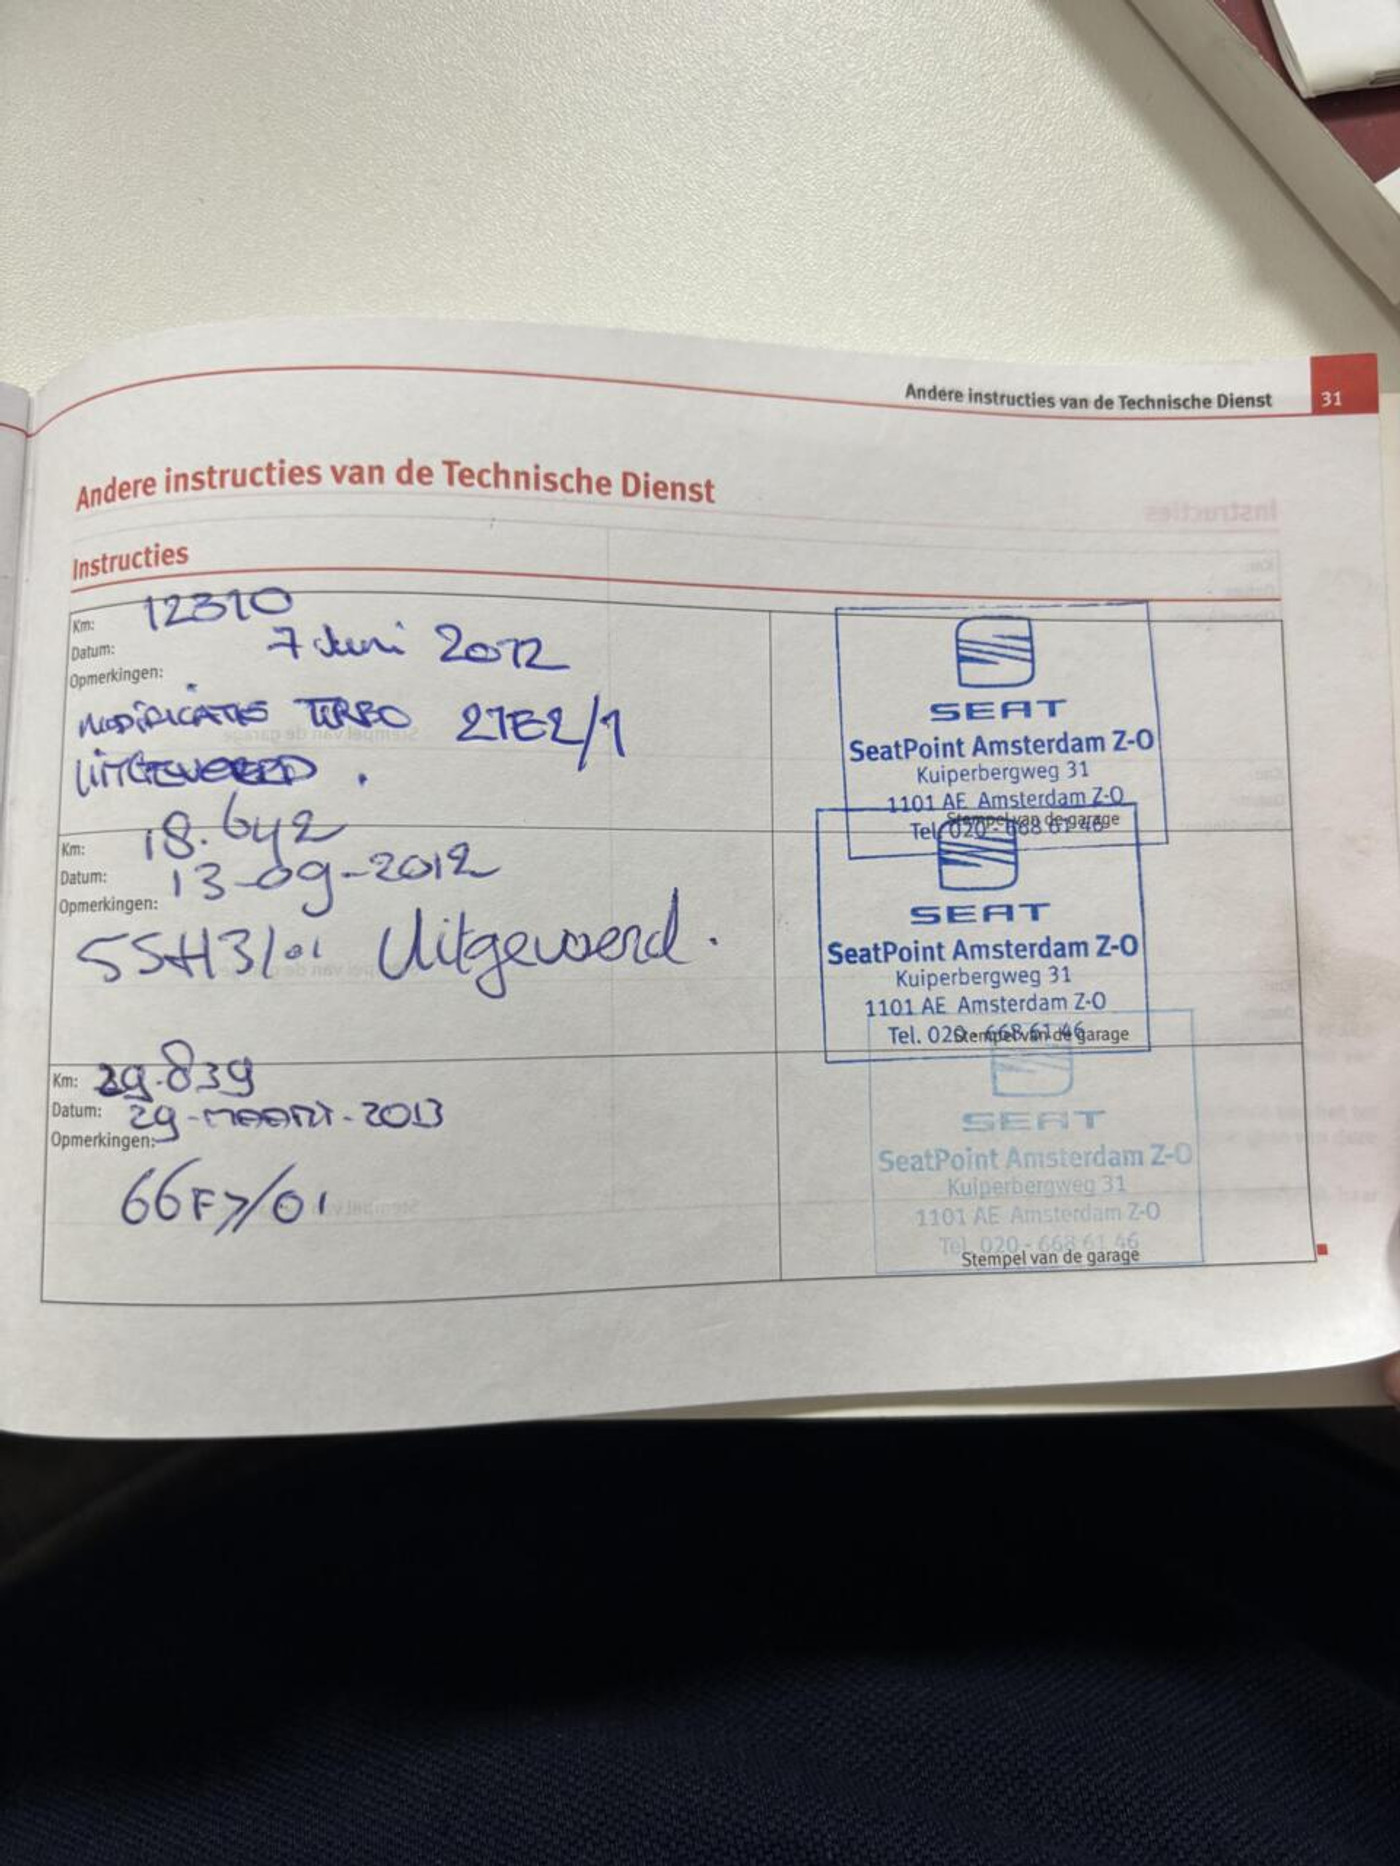 Andere instructies van de Technische Dienst 31
Andere instructies van de Technische Dienst
Instructies
Km: 12310
Datum: 7 Juni 2012
Opmerkingen:
MODIFICATIE TURBO 21E2/1
UITGEVOERD.
SEAT
SeatPoint Amsterdam Z-O
Kuiperbergweg 31
1101 AE Amsterdam Z-O
Tel. 020 - 668 61 46
Stempel van de garage
Km: 18.642
Datum: 13-09-2012
Opmerkingen:
55H3/01 Uitgevoerd.
SEAT
SeatPoint Amsterdam Z-O
Kuiperbergweg 31
1101 AE Amsterdam Z-O
Tel. 020 - 668 61 46
Stempel van de garage
Km: 29.839
Datum: 29-MAART-2013
Opmerkingen:
66F7/01
SEAT
SeatPoint Amsterdam Z-O
Kuiperbergweg 31
1101 AE Amsterdam Z-O
Tel. 020 - 668 61 46
Stempel van de garage